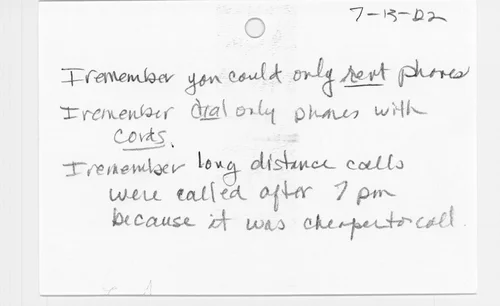 7-13-02
I remember you could only rent phones
I remember dial only phones with
cords.
I remember long distance calls
were called after 7 pm
because it was cheaper to call.